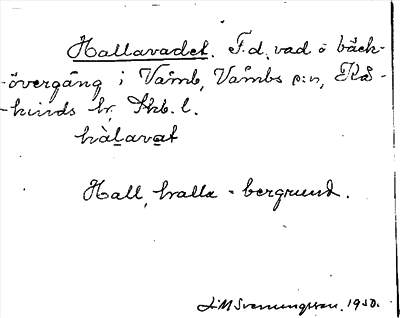 Hallavadet. F.d. vad ö bäck-
-övergång i Våmb, Våmbs s:n, Kå-
-kinds hr, Skb. l.
hàlavat
Hall, halla = bergrund.
1930.